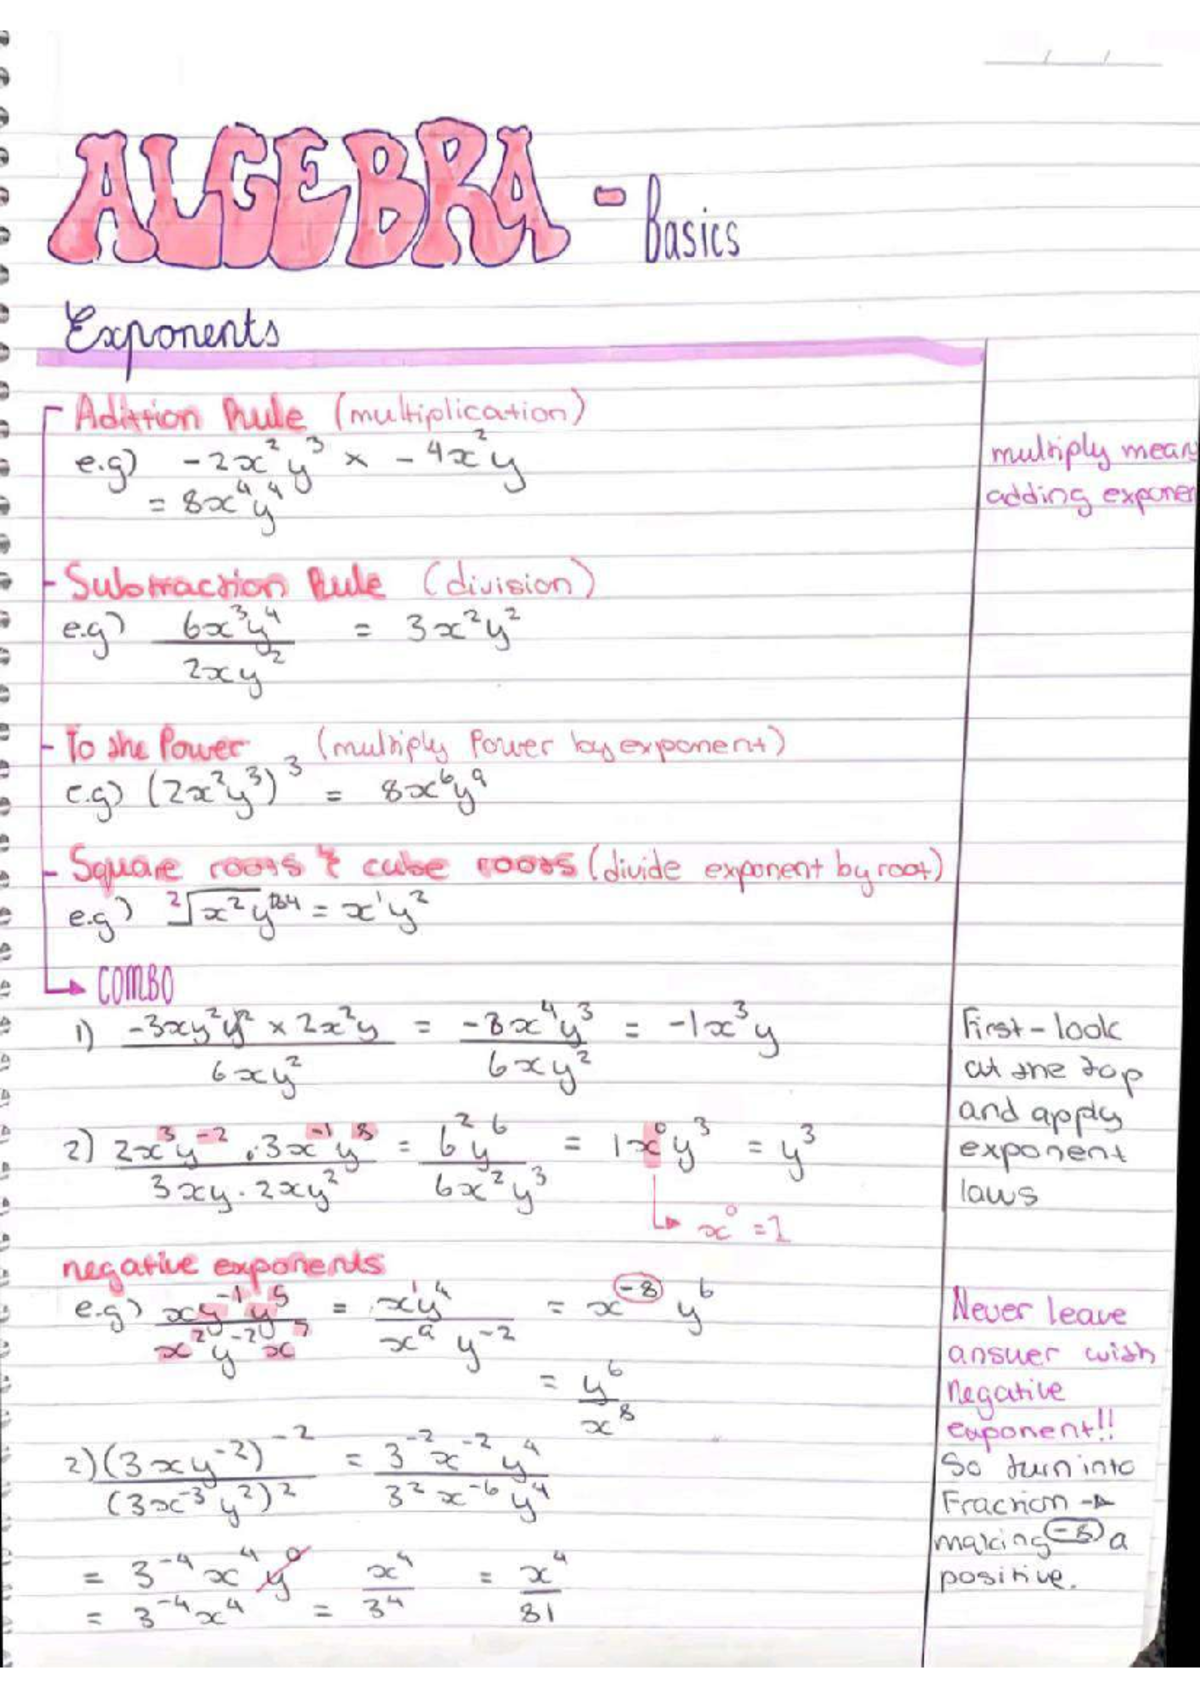 ALGEBRA - Basics
Exponents
Adittion Rule (multiplication)
e.g) -2x²y³ × -4x²y
= 8x⁴y⁴
multiply mean
adding exponen
Subtraction Rule (division)
e.g) 6x³y⁴ / 2xy² = 3x²y²
To the Power (multiply Power by exponent)
e.g) (2x²y³)³ = 8x⁶y⁹
Square roots & cube roots (divide exponent by root)
e.g) ²√x²y⁴ = x¹y²
COMBO
1) -3xy² × 2x²y / 6xy² = -8x⁴y³ / 6xy² = -1x³y
2) 2x³y⁻² · 3x⁻¹y⁸ / 3xy · 2xy² = 6²y⁶ / 6x²y³ = 1x⁰y³ = y³
x⁰ = 1
First - look
at the top
and apply
exponent
laws
negative exponents
e.g) xy⁻¹y⁵ / x²y⁻²x⁷ = x¹y⁴ / x⁹y⁻² = x⁻⁸y⁶
= y⁶ / x⁸
2) (3xy⁻²)⁻² / (3x⁻³y²)² = 3⁻²x⁻²y⁴ / 3²x⁻⁶y⁴
= 3⁻⁴x⁴y⁰
= 3⁻⁴x⁴ = x⁴ / 3⁴ = x⁴ / 81
Never leave
answer with
negative
exponent!!
So turn into
Fraction →
making -8 a
positive.